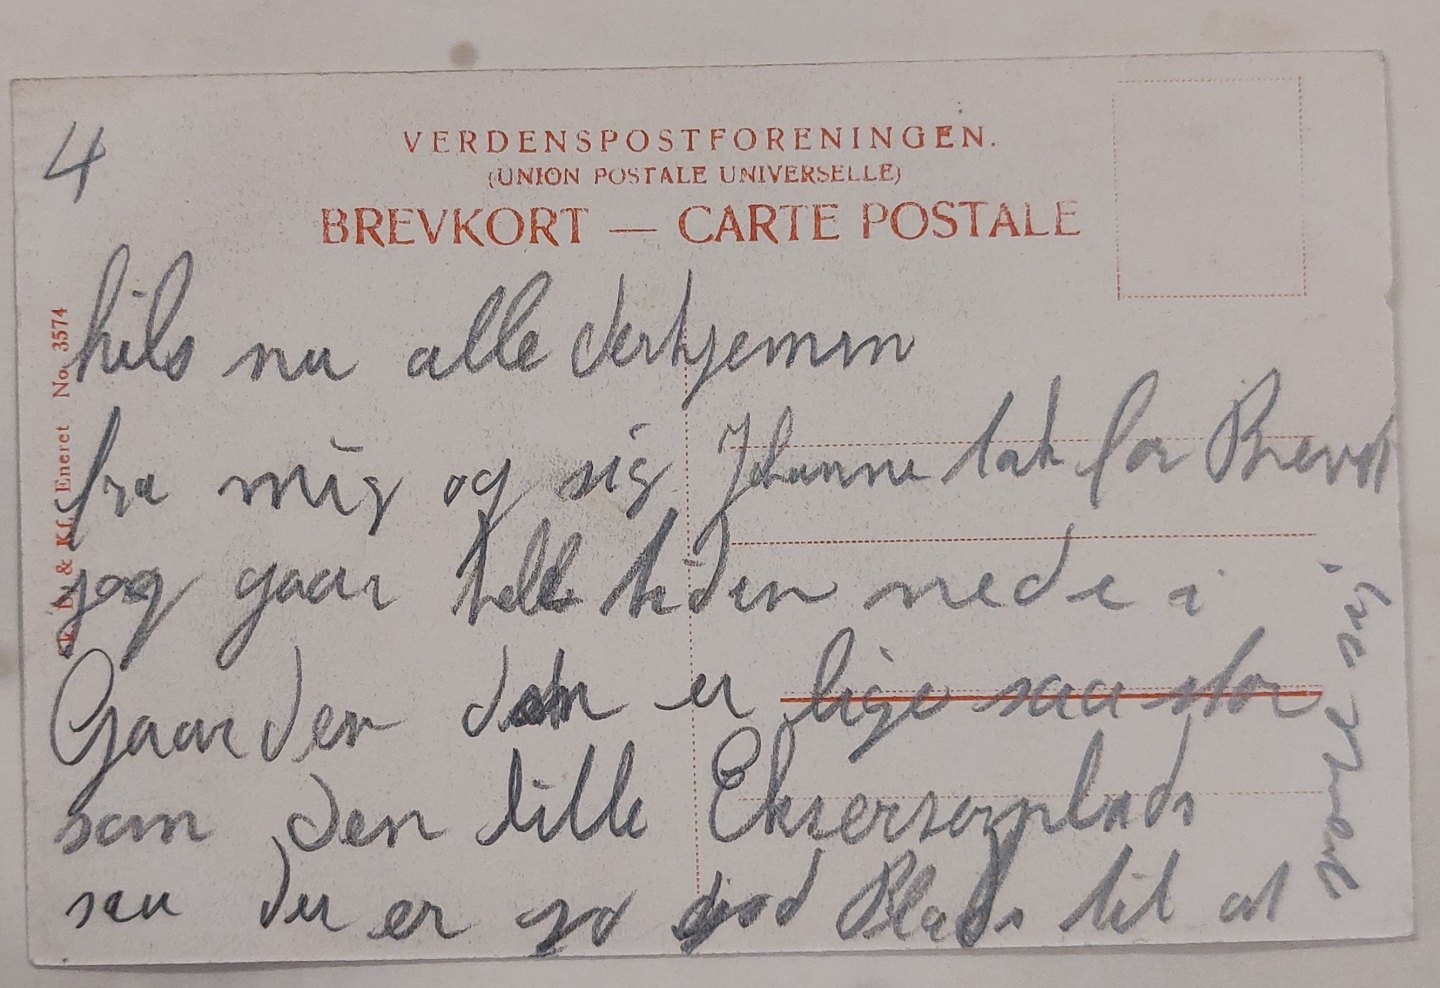 4
VERDENSPOSTFORENINGEN.
(UNION POSTALE UNIVERSELLE)
BREVKORT — CARTE POSTALE
No. 3574
Eneret
hils nu alle derhjemm
fra mig og sig Johanne tak for Brevet
jag gaar hele tiden nede i
Gaarden den er lige saa stor
som den lille Ekserserplads
saa der er jo god Plads til at
røre sig